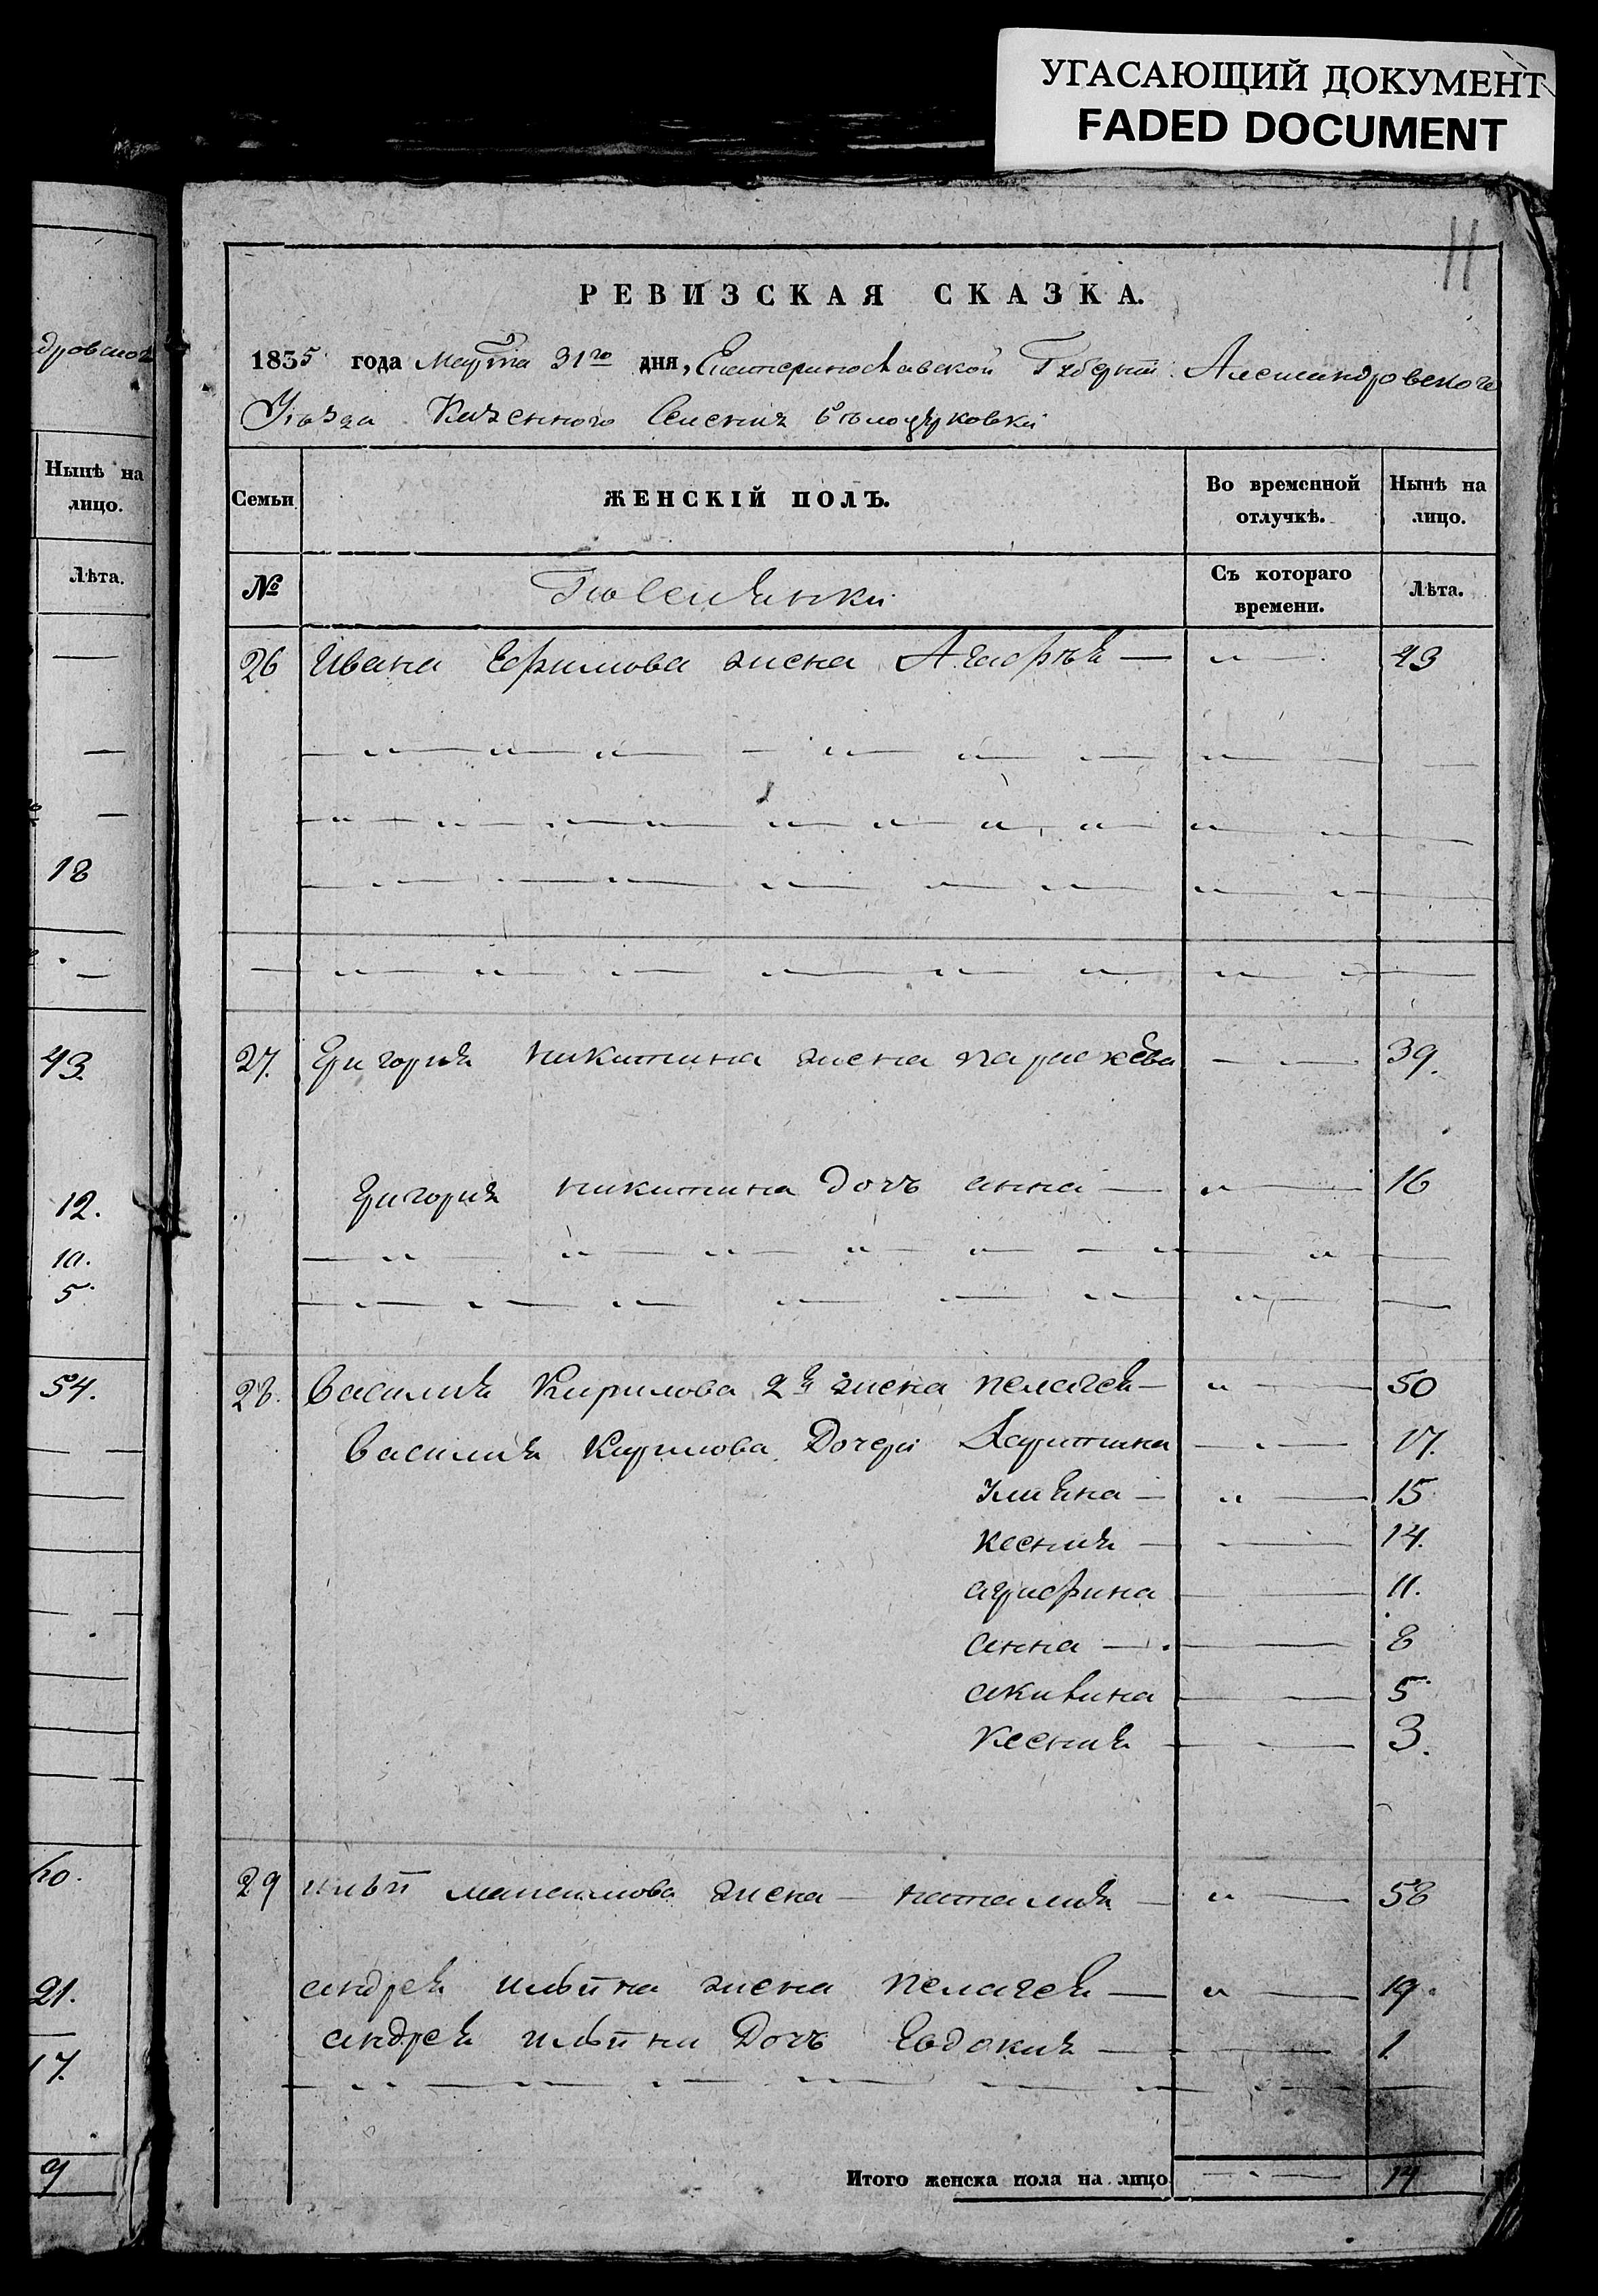 УГАСАЮЩИЙ ДОКУМЕНТ
FADED DOCUMENT
11
РЕВИЗСКАЯ СКАЗКА.
1835 года Марта 31го дня, Екатеринославской Губернии Александровского
Уѣзда Казенного Селения бѣлоцѣрковки
Семьи
ЖЕНСКІЙ ПОЛЪ.
Во временной отлучкѣ.
Нынѣ на лицо.
№
Поселянки
Съ котораго времени.
Лѣта.
26 Ивана Ефимова жена Агафья — 43
27. Григория никитина жена параскева — 39.
Григория никитина дочь анна — 16
28. Василия Кирилова 2я жена пелагея — 50
Василия Кирилова Дочери Харитина — 17.
улияна — 15
ксения — 14.
агрифина — 11.
анна — 8
акилина — 5
Ксения — 3.
29 ильи максимова жена — наталия — 58
андрея ильина жена пелагея — 19.
андрея ильина Дочь Евдокия — 1.
Итого женска пола на лицо — 14
дровского
Нынѣ на
лицо.
Лѣта.
18
43.
12.
10.
5.
54.
21.
17.
9